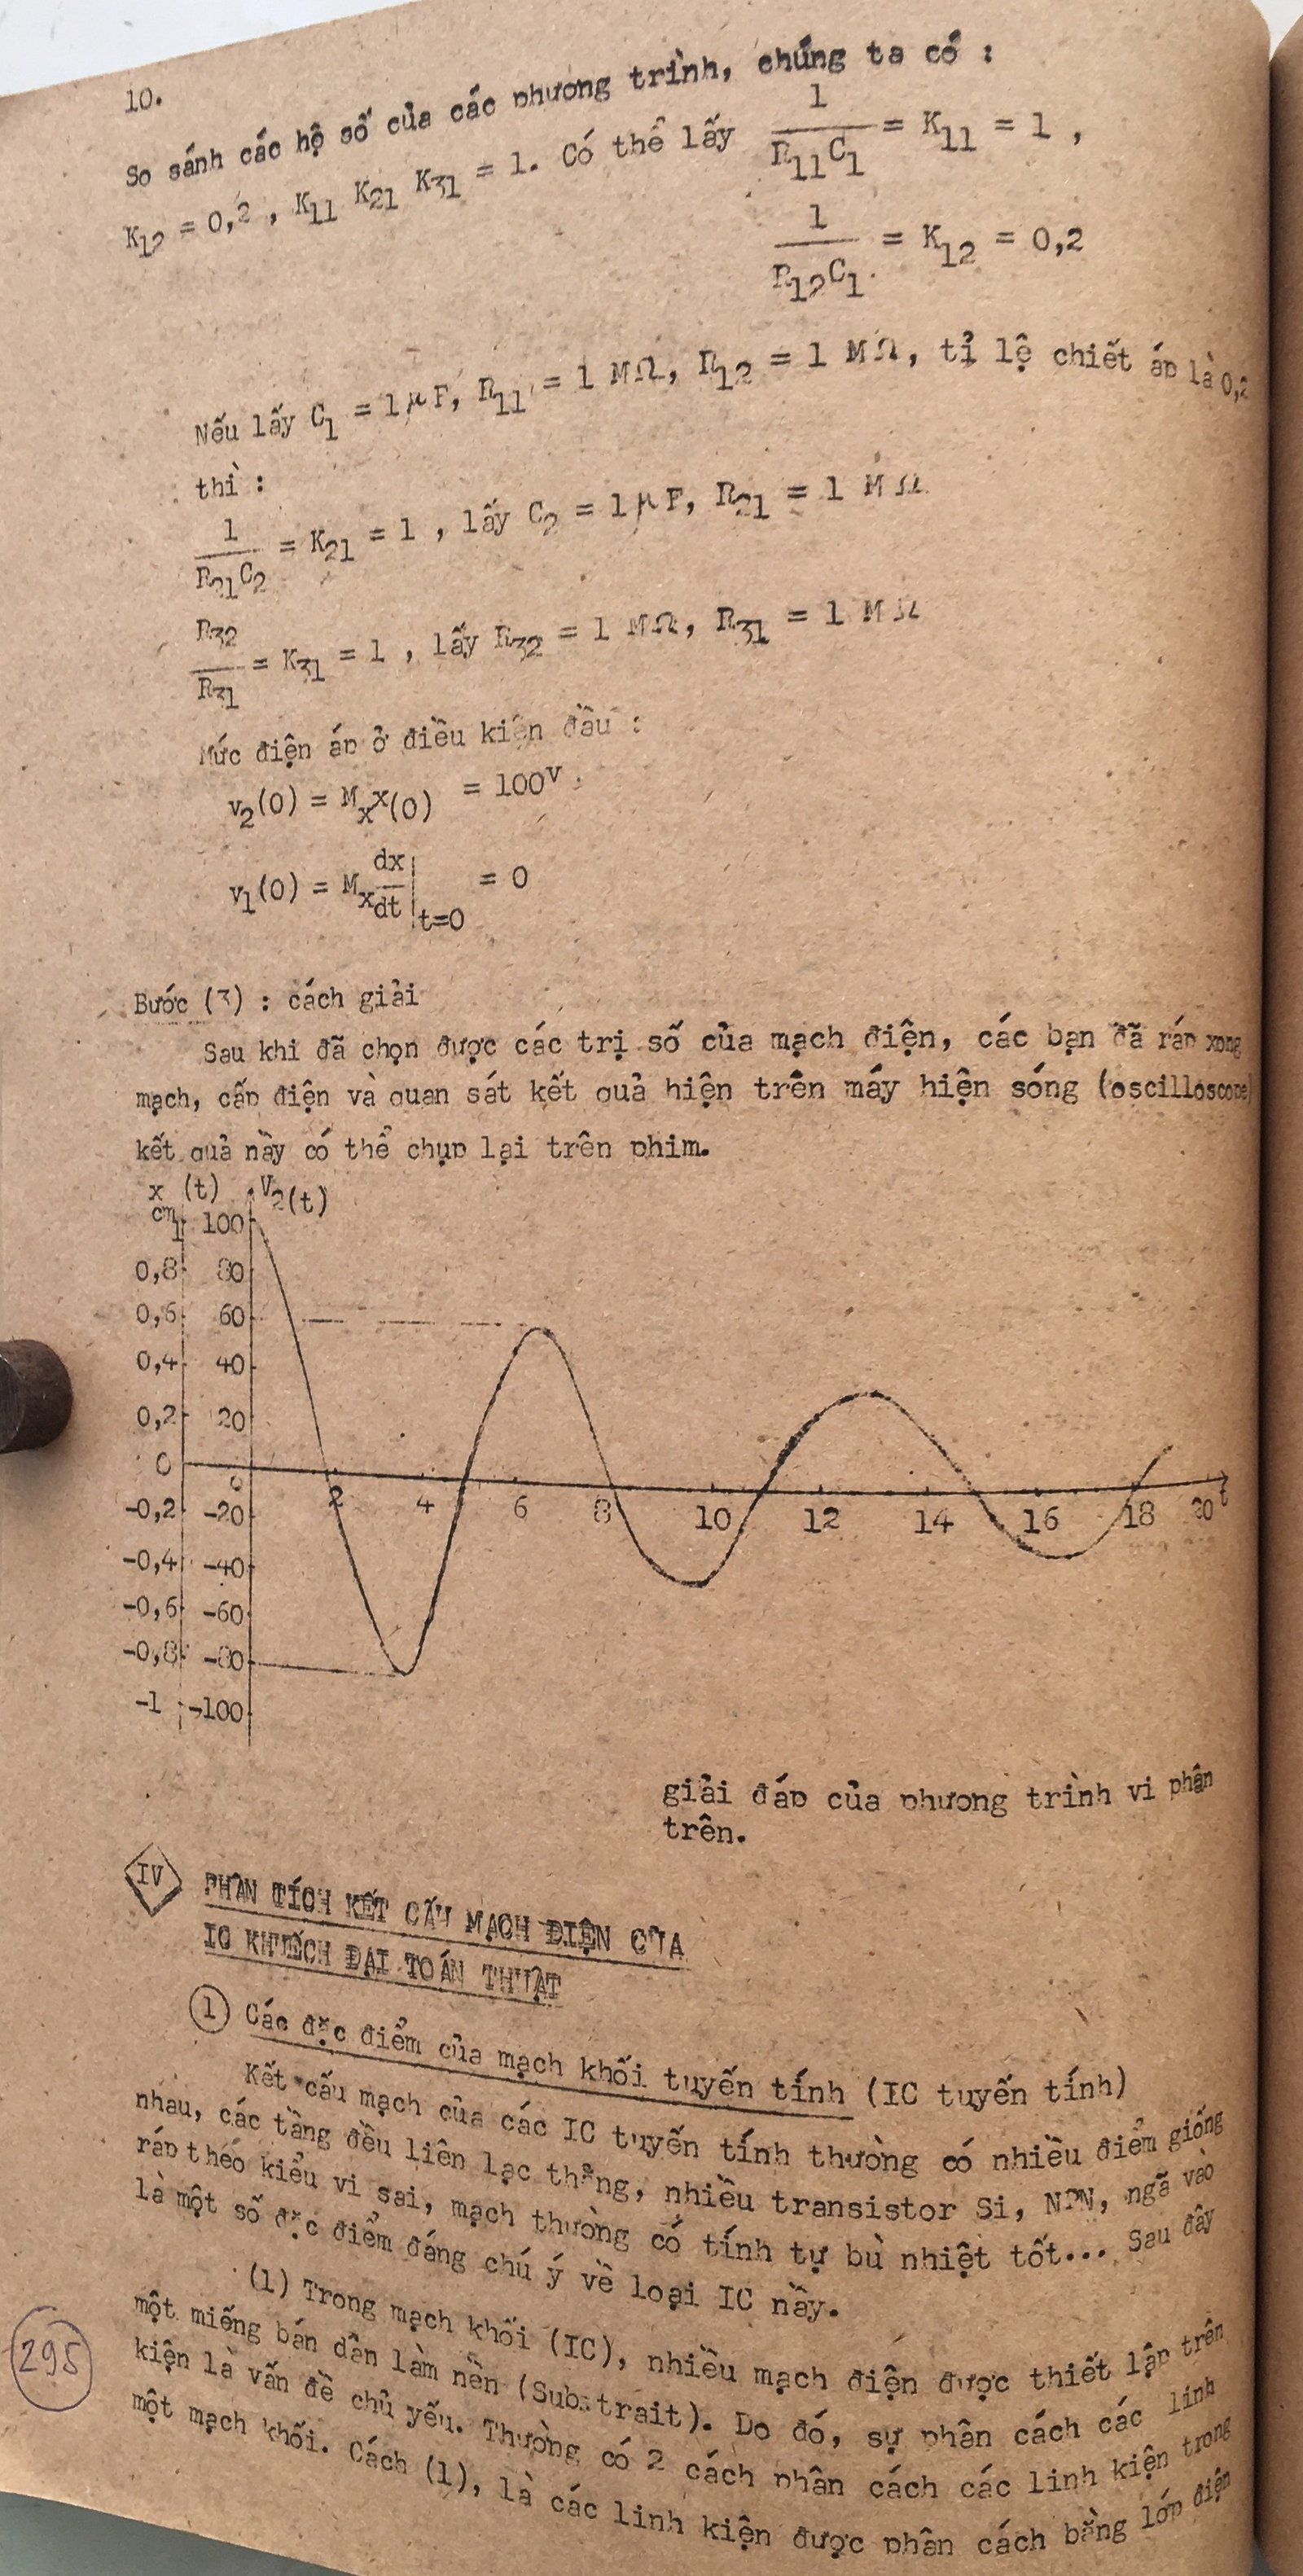 10.
So sánh các hệ số của các phương trình, chúng ta có :
K12 = 0,2 , K11 K21 K31 = 1. Có thể lấy 1/R11C1 = K11 = 1 ,
1/R12C1 = K12 = 0,2
Nếu lấy C1 = 1 μF, R11 = 1 MΩ, R12 = 1 MΩ, tỉ lệ chiết áp là 0,2
thì :
1/R21C2 = K21 = 1 , lấy C2 = 1 μF, R21 = 1 MΩ
R32/R31 = K31 = 1 , lấy R32 = 1 MΩ, R31 = 1 MΩ
Mức điện áp ở điều kiện đầu :
v2(0) = Mxx(0) = 100V.
v1(0) = Mx dx/dt|t=0 = 0
Bước (3) : cách giải
Sau khi đã chọn được các trị số của mạch điện, các bạn đã ráp xong
mạch, cấp điện và quan sát kết quả hiện trên máy hiện sóng (oscilloscope)
kết quả nầy có thể chụp lại trên phim.
x (t) V2(t)
cm
1 100
0,8 80
0,6 60
0,4 40
0,2 20
0 0
-0,2 -20
-0,4 -40
-0,6 -60
-0,8 -80
-1 -100
2 4 6 8 10 12 14 16 18 20 t
giải đáp của phương trình vi phân
trên.
IV PHÂN TÍCH KẾT CẤU MẠCH ĐIỆN CỦA
IC KHUẾCH ĐẠI TOÁN THUẬT
1 Các đặc điểm của mạch khối tuyến tính (IC tuyến tính)
Kết cấu mạch của các IC tuyến tính thường có nhiều điểm giống
nhau, các tầng đều liên lạc thẳng, nhiều transistor Si, NPN, ngã vào
ráp theo kiểu vi sai, mạch thường có tính tự bù nhiệt tốt... Sau đây
là một số đặc điểm đáng chú ý về loại IC nầy.
(1) Trong mạch khối (IC), nhiều mạch điện được thiết lập trên
một miếng bán dẫn làm nền (Substrait). Do đó, sự phân cách các linh
kiện là vấn đề chủ yếu. Thường có 2 cách phân cách các linh kiện trong
một mạch khối. Cách (1), là các linh kiện được phân cách bằng lớp điện
295